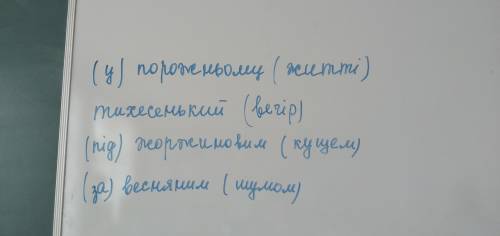 (у) порожньому (житті)
тихесенький (вечір)
(під) жоржиновим (кущем)
(за) весняним (шумом)